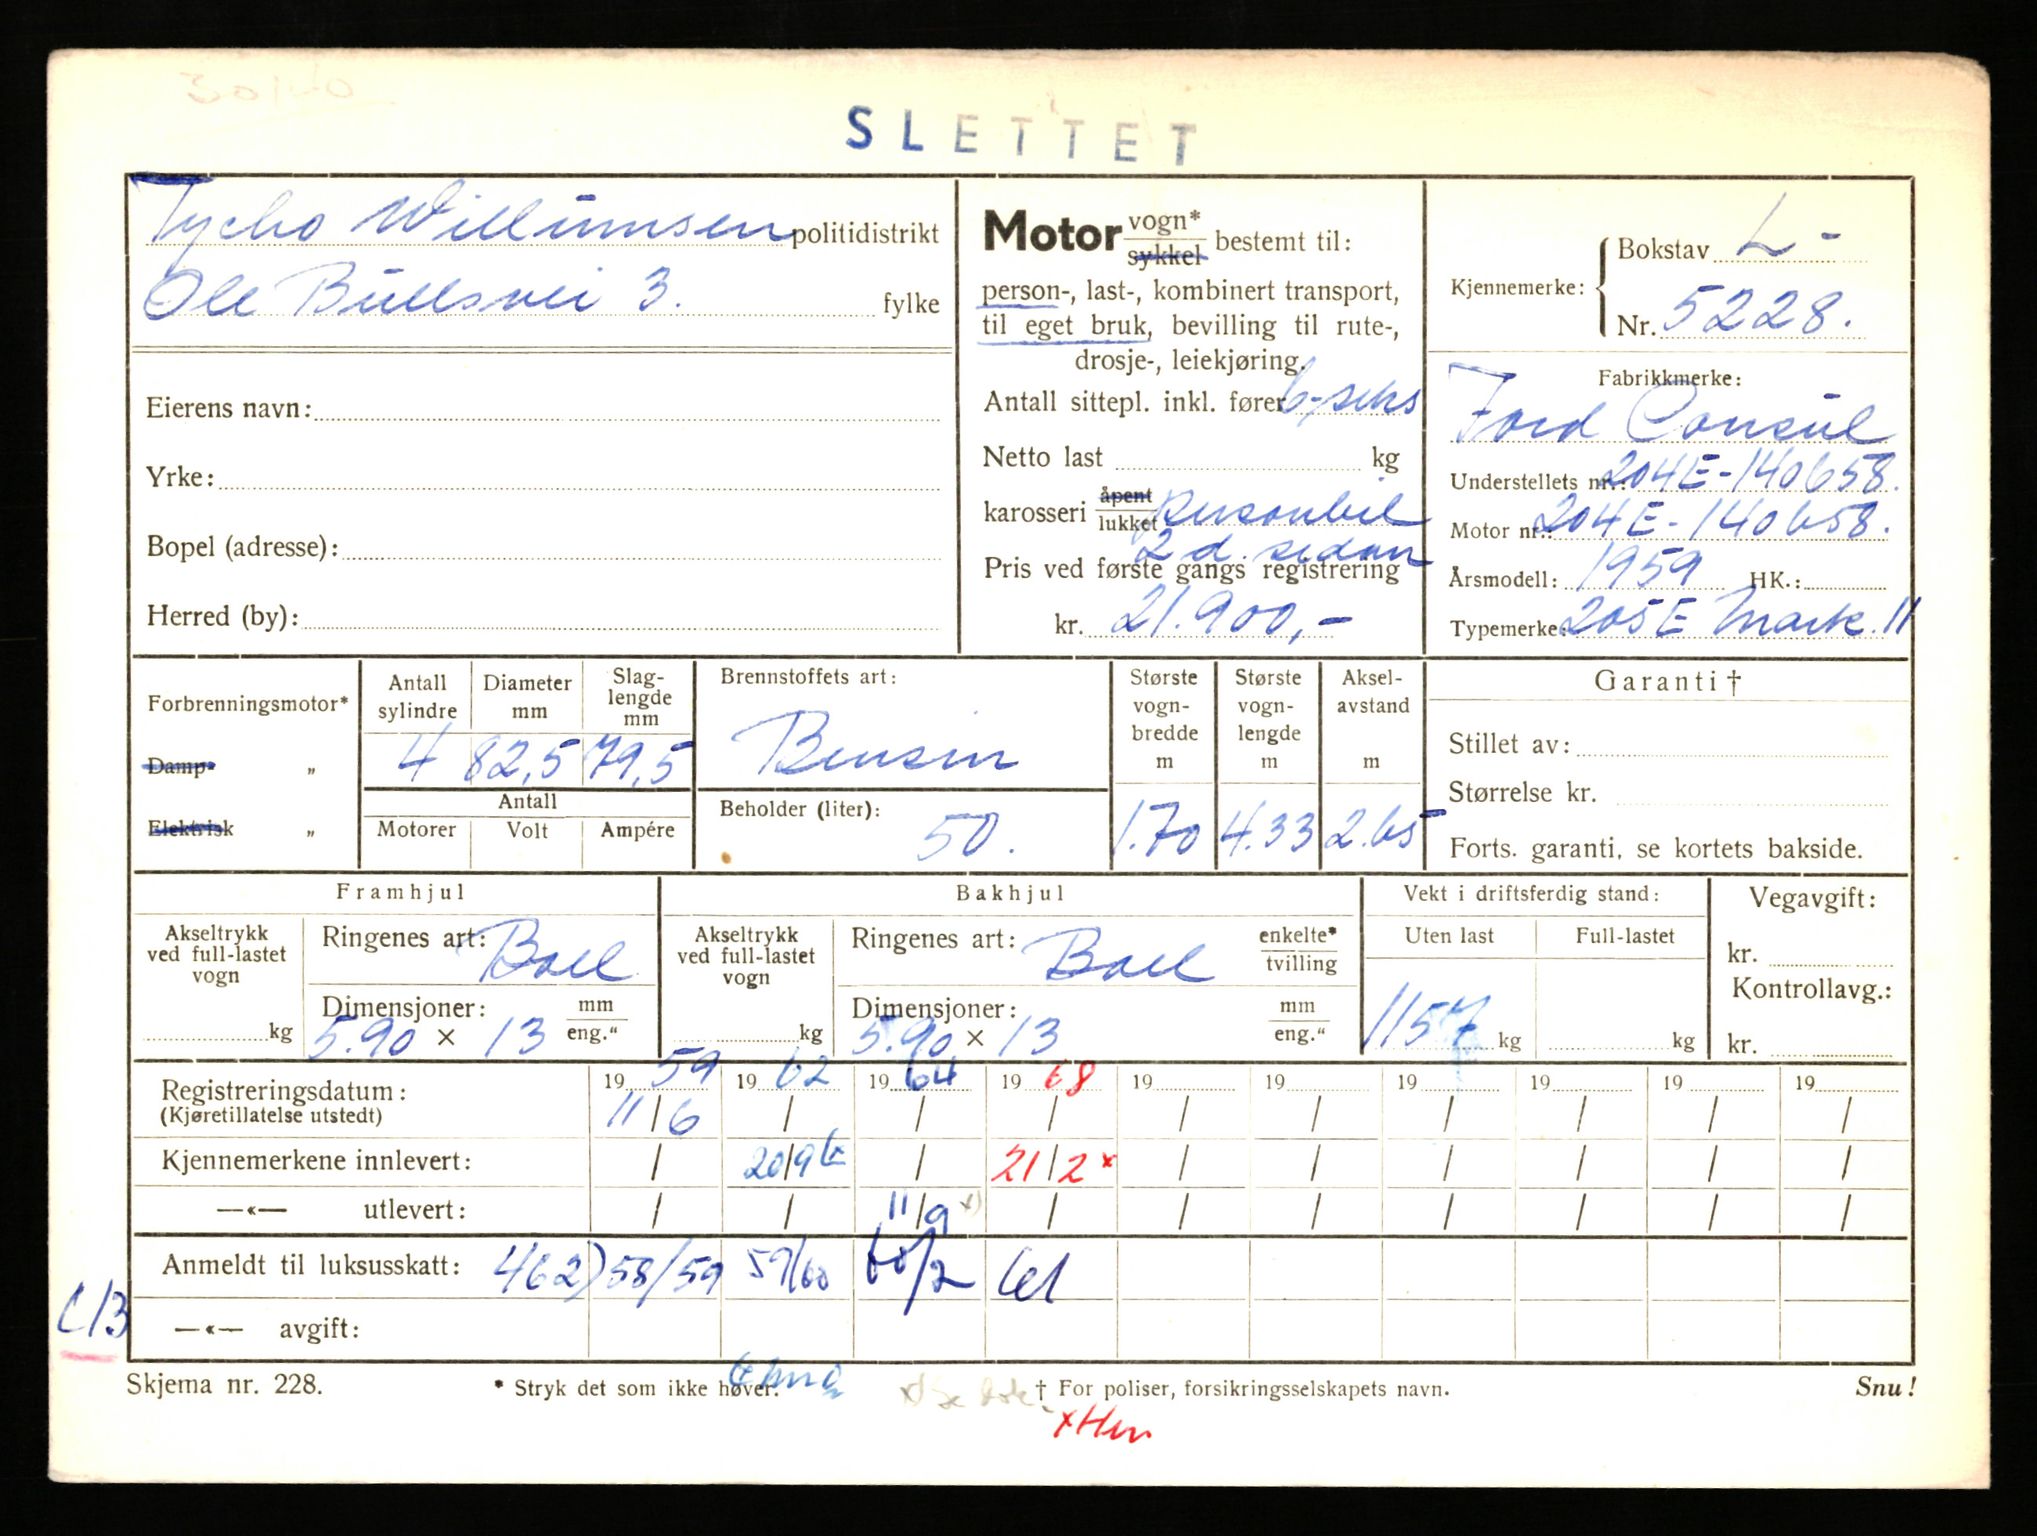 30140
SLETTET
Tycho Willumsen politidistrikt
Ole Bullsvei 3. fylke
Eierens navn:
Yrke:
Bopel (adresse):
Herred (by):
Motor vogn* sykkel bestemt til:
person-, last-, kombinert transport,
til eget bruk, bevilling til rute-,
drosje-, leiekjøring.
Antall sittepl. inkl. fører 6-seks
Netto last kg
karosseri åpent lukket personbil
2 d. sedan
Pris ved første gangs registrering
kr. 21.900,-
Kjennemerke: Bokstav L-
Nr. 5228.
Fabrikkmerke:
Ford Consul
Understellets nr.: 204E-140658.
Motor nr.: 204E-140658.
Årsmodell: 1959 HK.:
Typemerke: 205E Mark. II
Forbrenningsmotor*
Damp- „
Elektrisk „
Antall sylindre Diameter mm Slag-lengde mm
4 82,5 79,5
Antall
Motorer Volt Ampére
Brennstoffets art:
Bensin
Beholder (liter):
50.
Største vogn-bredde m
1.70
Største vogn-lengde m
4.33
Aksel-avstand m
2.65
Garanti †
Stillet av:
Størrelse kr.
Forts. garanti, se kortets bakside.
Framhjul
Akseltrykk ved full-lastet vogn
kg
Ringenes art: Ball
Dimensjoner: mm eng."
5.90 × 13
Bakhjul
Akseltrykk ved full-lastet vogn
kg
Ringenes art: Ball enkelte* tvilling
Dimensjoner: mm eng."
5.90 × 13
Vekt i driftsferdig stand:
Uten last Full-lastet
1157 kg kg
Vegavgift:
kr.
Kontrollavg.:
kr.
Registreringsdatum: 19 59 19 62 19 64 19 68 19 19 19 19 19 19
(Kjøretillatelse utstedt) 11/6 / / / / / / / / /
Kjennemerkene innlevert: / 20/9 / 21/2 x / / / / / /
—«— utlevert: / / 11/9 x) / / / / / / /
Anmeldt til luksusskatt: 462) 58/59 59/60 60/2 61
C/3
—«— avgift:
Skjema nr. 228.
* Stryk det som ikke høver.
† For poliser, forsikringsselskapets navn.
Snu!